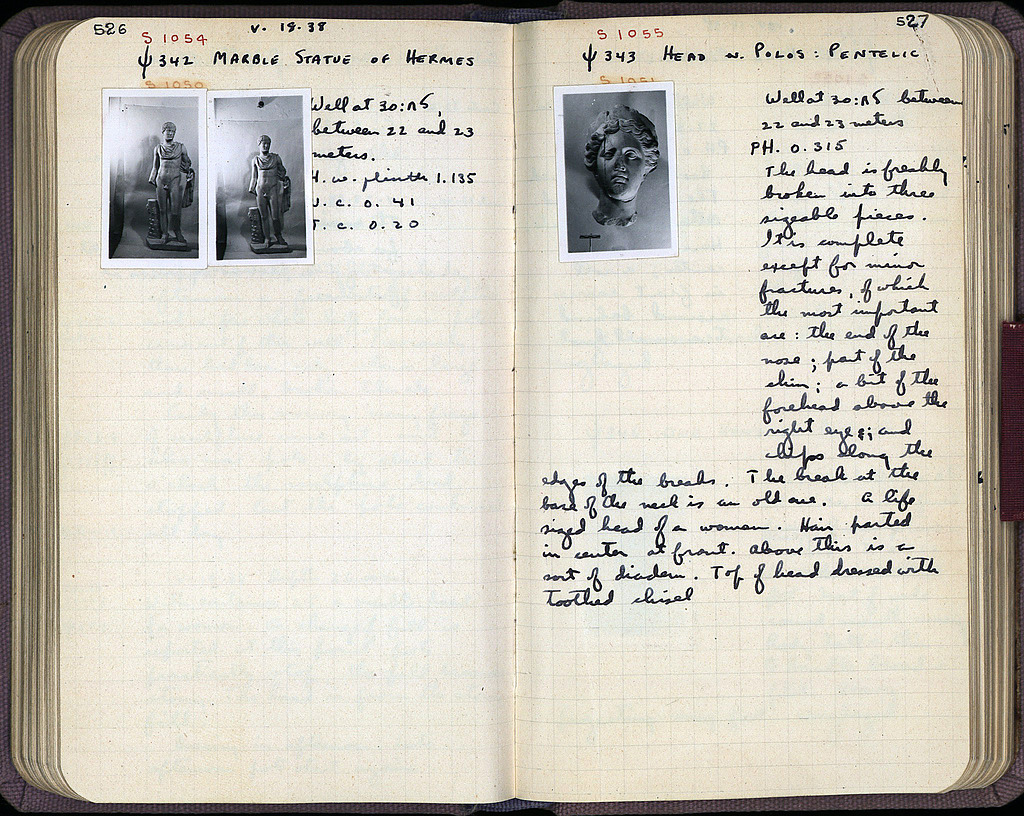 526
v. 18·38
S 1054
ψ 342 MARBLE STATUE OF HERMES
S 1050
Well at 30:ΛΣ,
between 22 and 23
meters.
H. w. plinth 1.135
W. c. 0. 41
T. c. 0. 20
527
S 1055
ψ 343 HEAD w. POLOS : PENTELIC
S 1051
Well at 30:ΛΣ between
22 and 23 meters
PH. 0.315
The head is freshly
broken into three
sizeable pieces.
It is complete
except for minor
fractures, of which
the most important
are : the end of the
nose ; part of the
chin ; a bit of the
forehead above the
right eye ; and
chips along the
edges of the breaks. The break at the
base of the neck is an old one. A life
sized head of a woman. Hair parted
in center at front. Above this is a
sort of diadem. Top of head dressed with
toothed chisel